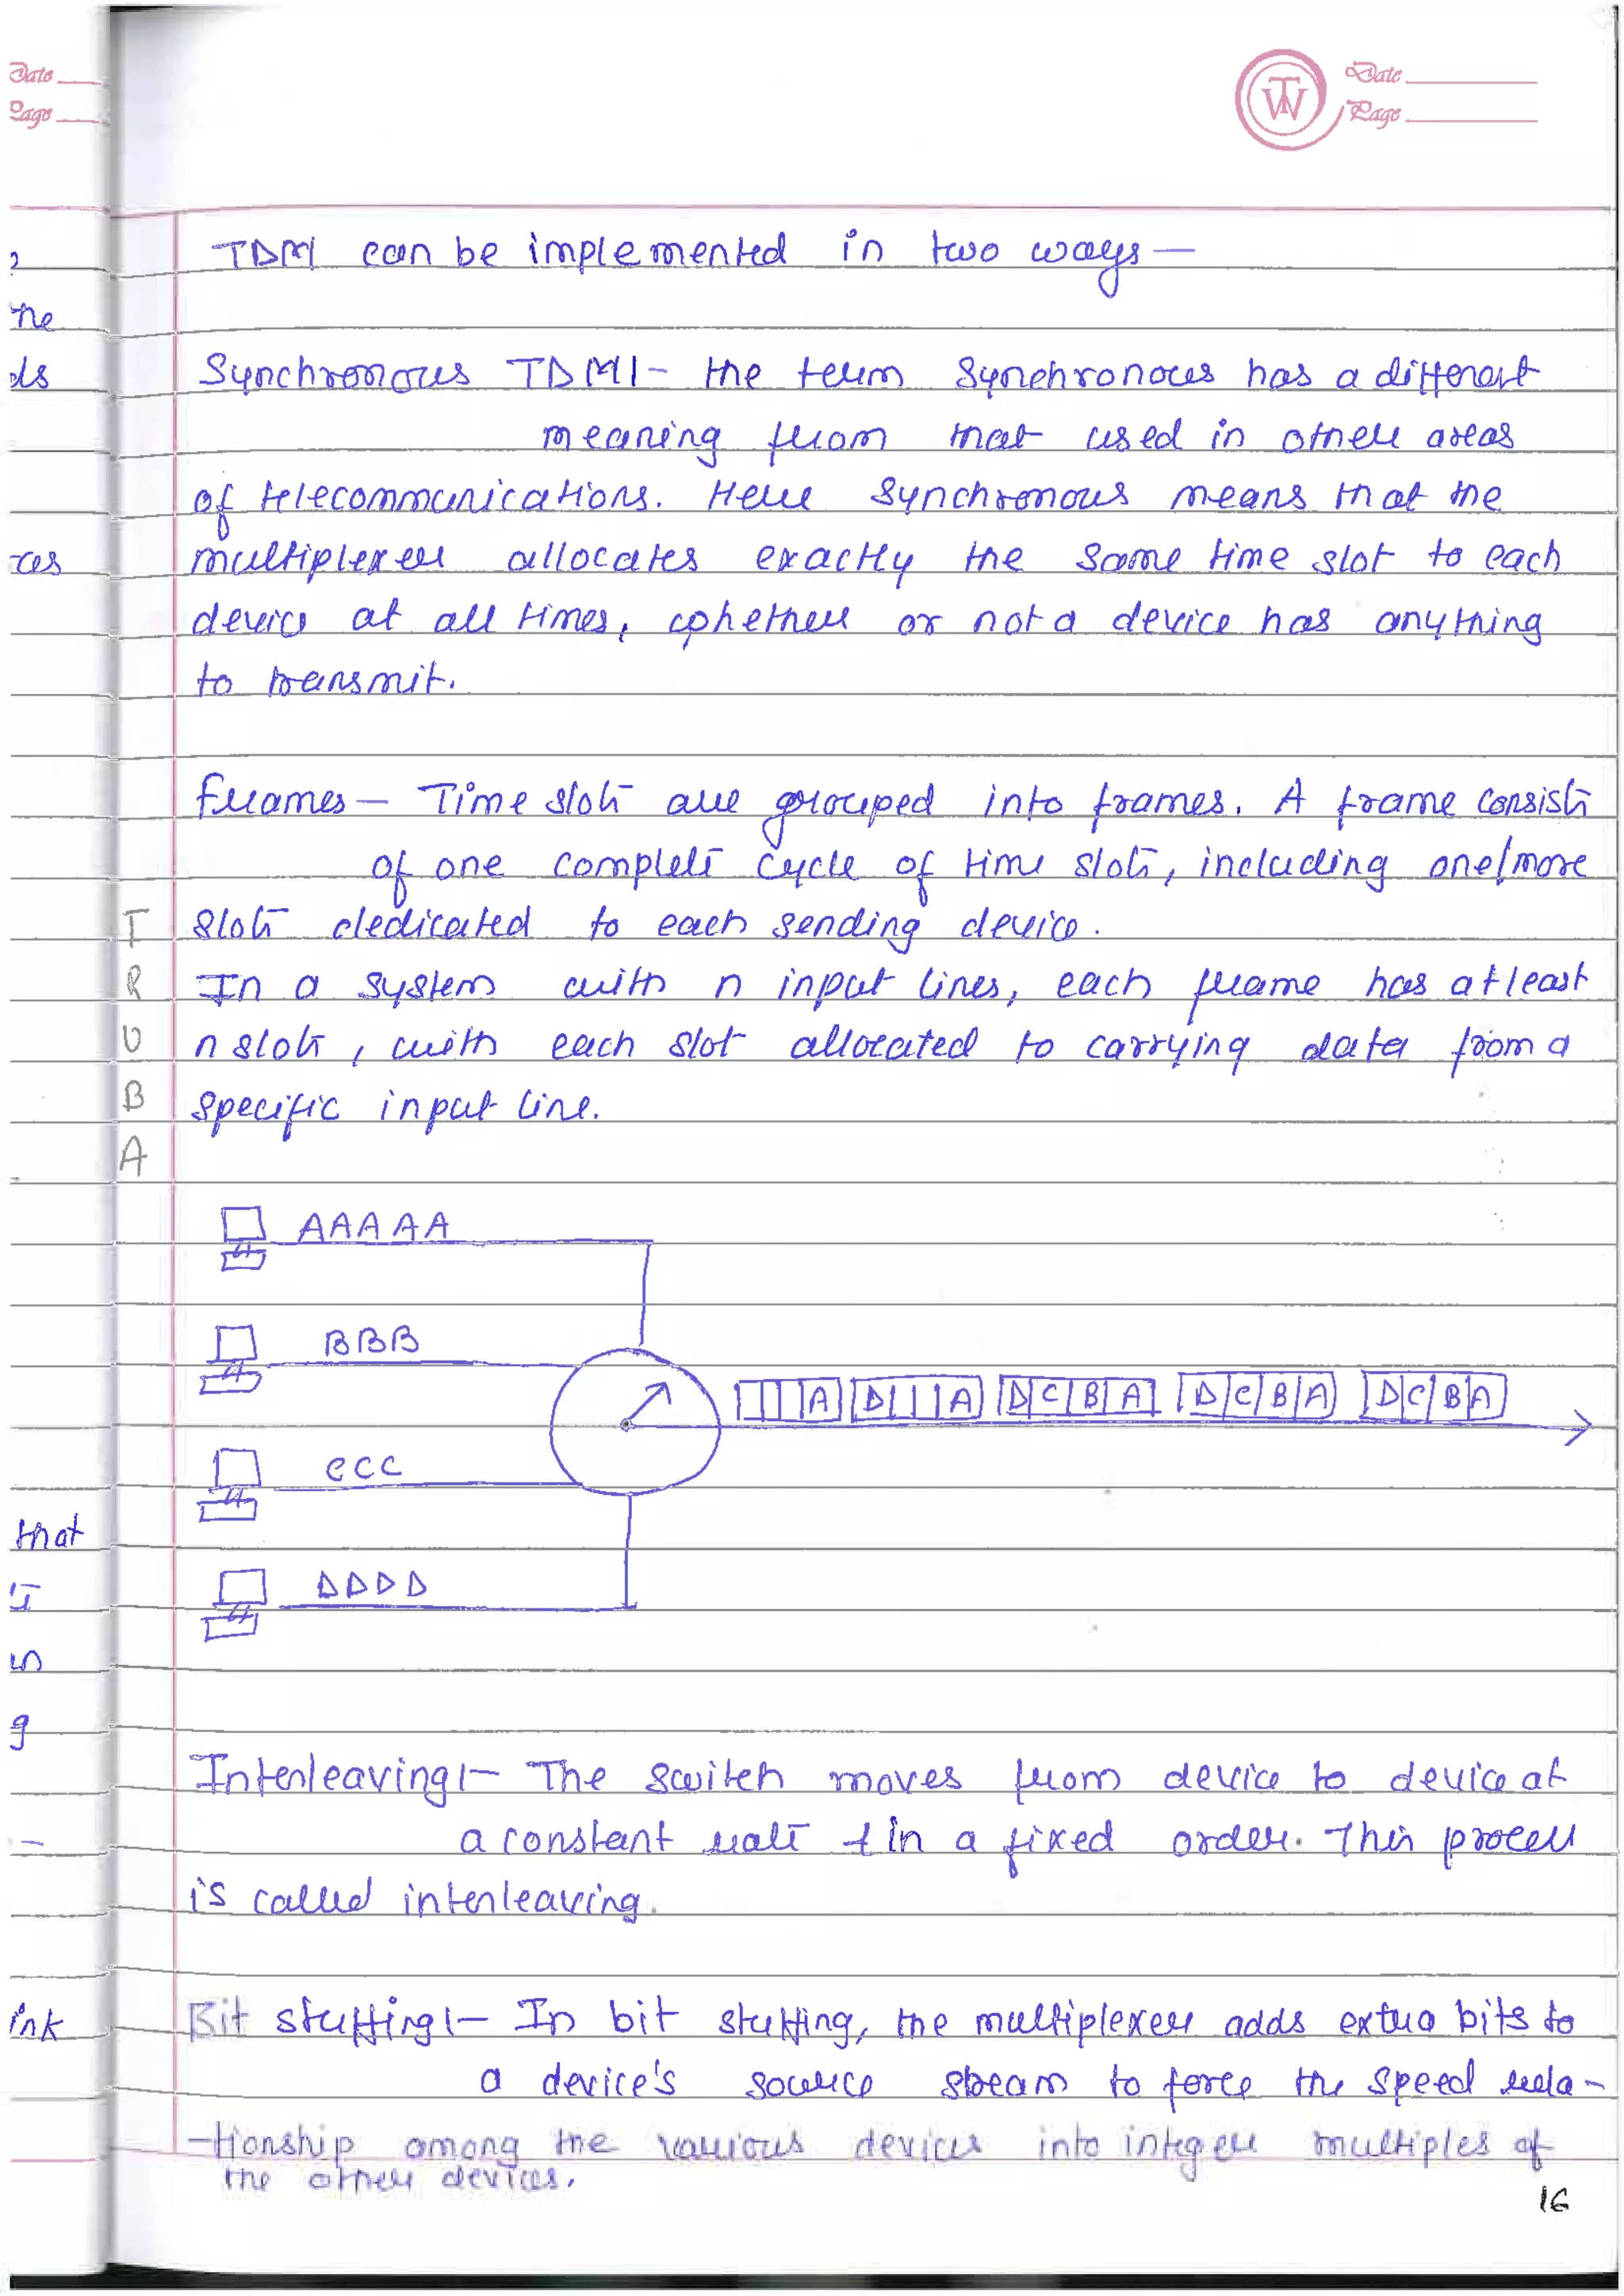 Date
Page
Date
Page
TW
TDM can be implemented in two ways —
Synchronous TDM :- the term Synchronous has a different
meaning from that used in other areas
of telecommunications. Here Synchronous means that the
multiplexer allocates exactly the same time slot to each
device at all times, whether or not a device has anything
to transmit.
frames — Time slots are grouped into frames. A frame consists
of one complete cycle of time slots, including one/more
slots dedicated to each sending device.
In a system with n input lines, each frame has atleast
n slots, with each slot allocated to carrying data from a
specific input line.
T
R
U
B
A
AAAAA
BBB
A D A D C B A D C B A D C B A
CCC
DDDD
Interleaving :- The switch moves from device to device at
a constant rate & in a fixed order. This process
is called interleaving.
Bit stuffing :- In bit stuffing, the multiplexer adds extra bits to
a device's source stream to force the speed rela-
-tionship among the various devices into integer multiples of
the other devices.
16
he
ds
ces
that
g
ink